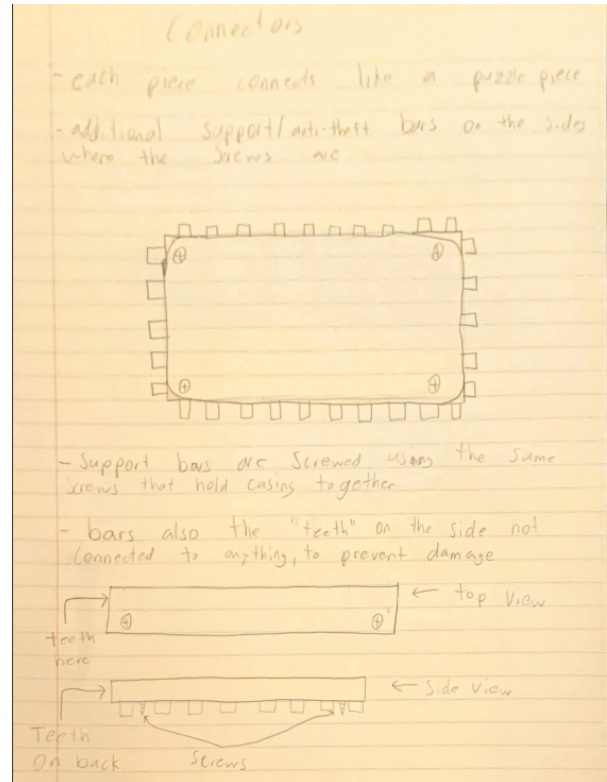 Connectors
- each piece connects like a puzzle piece
- additional support/anti-theft bars on the sides
where the screws are
- Support bars are screwed using the same
screws that hold casing together
- bars also the "teeth" on the side not
connected to anything, to prevent damage
← top view
teeth
here
← Side view
Teeth
on back
Screws